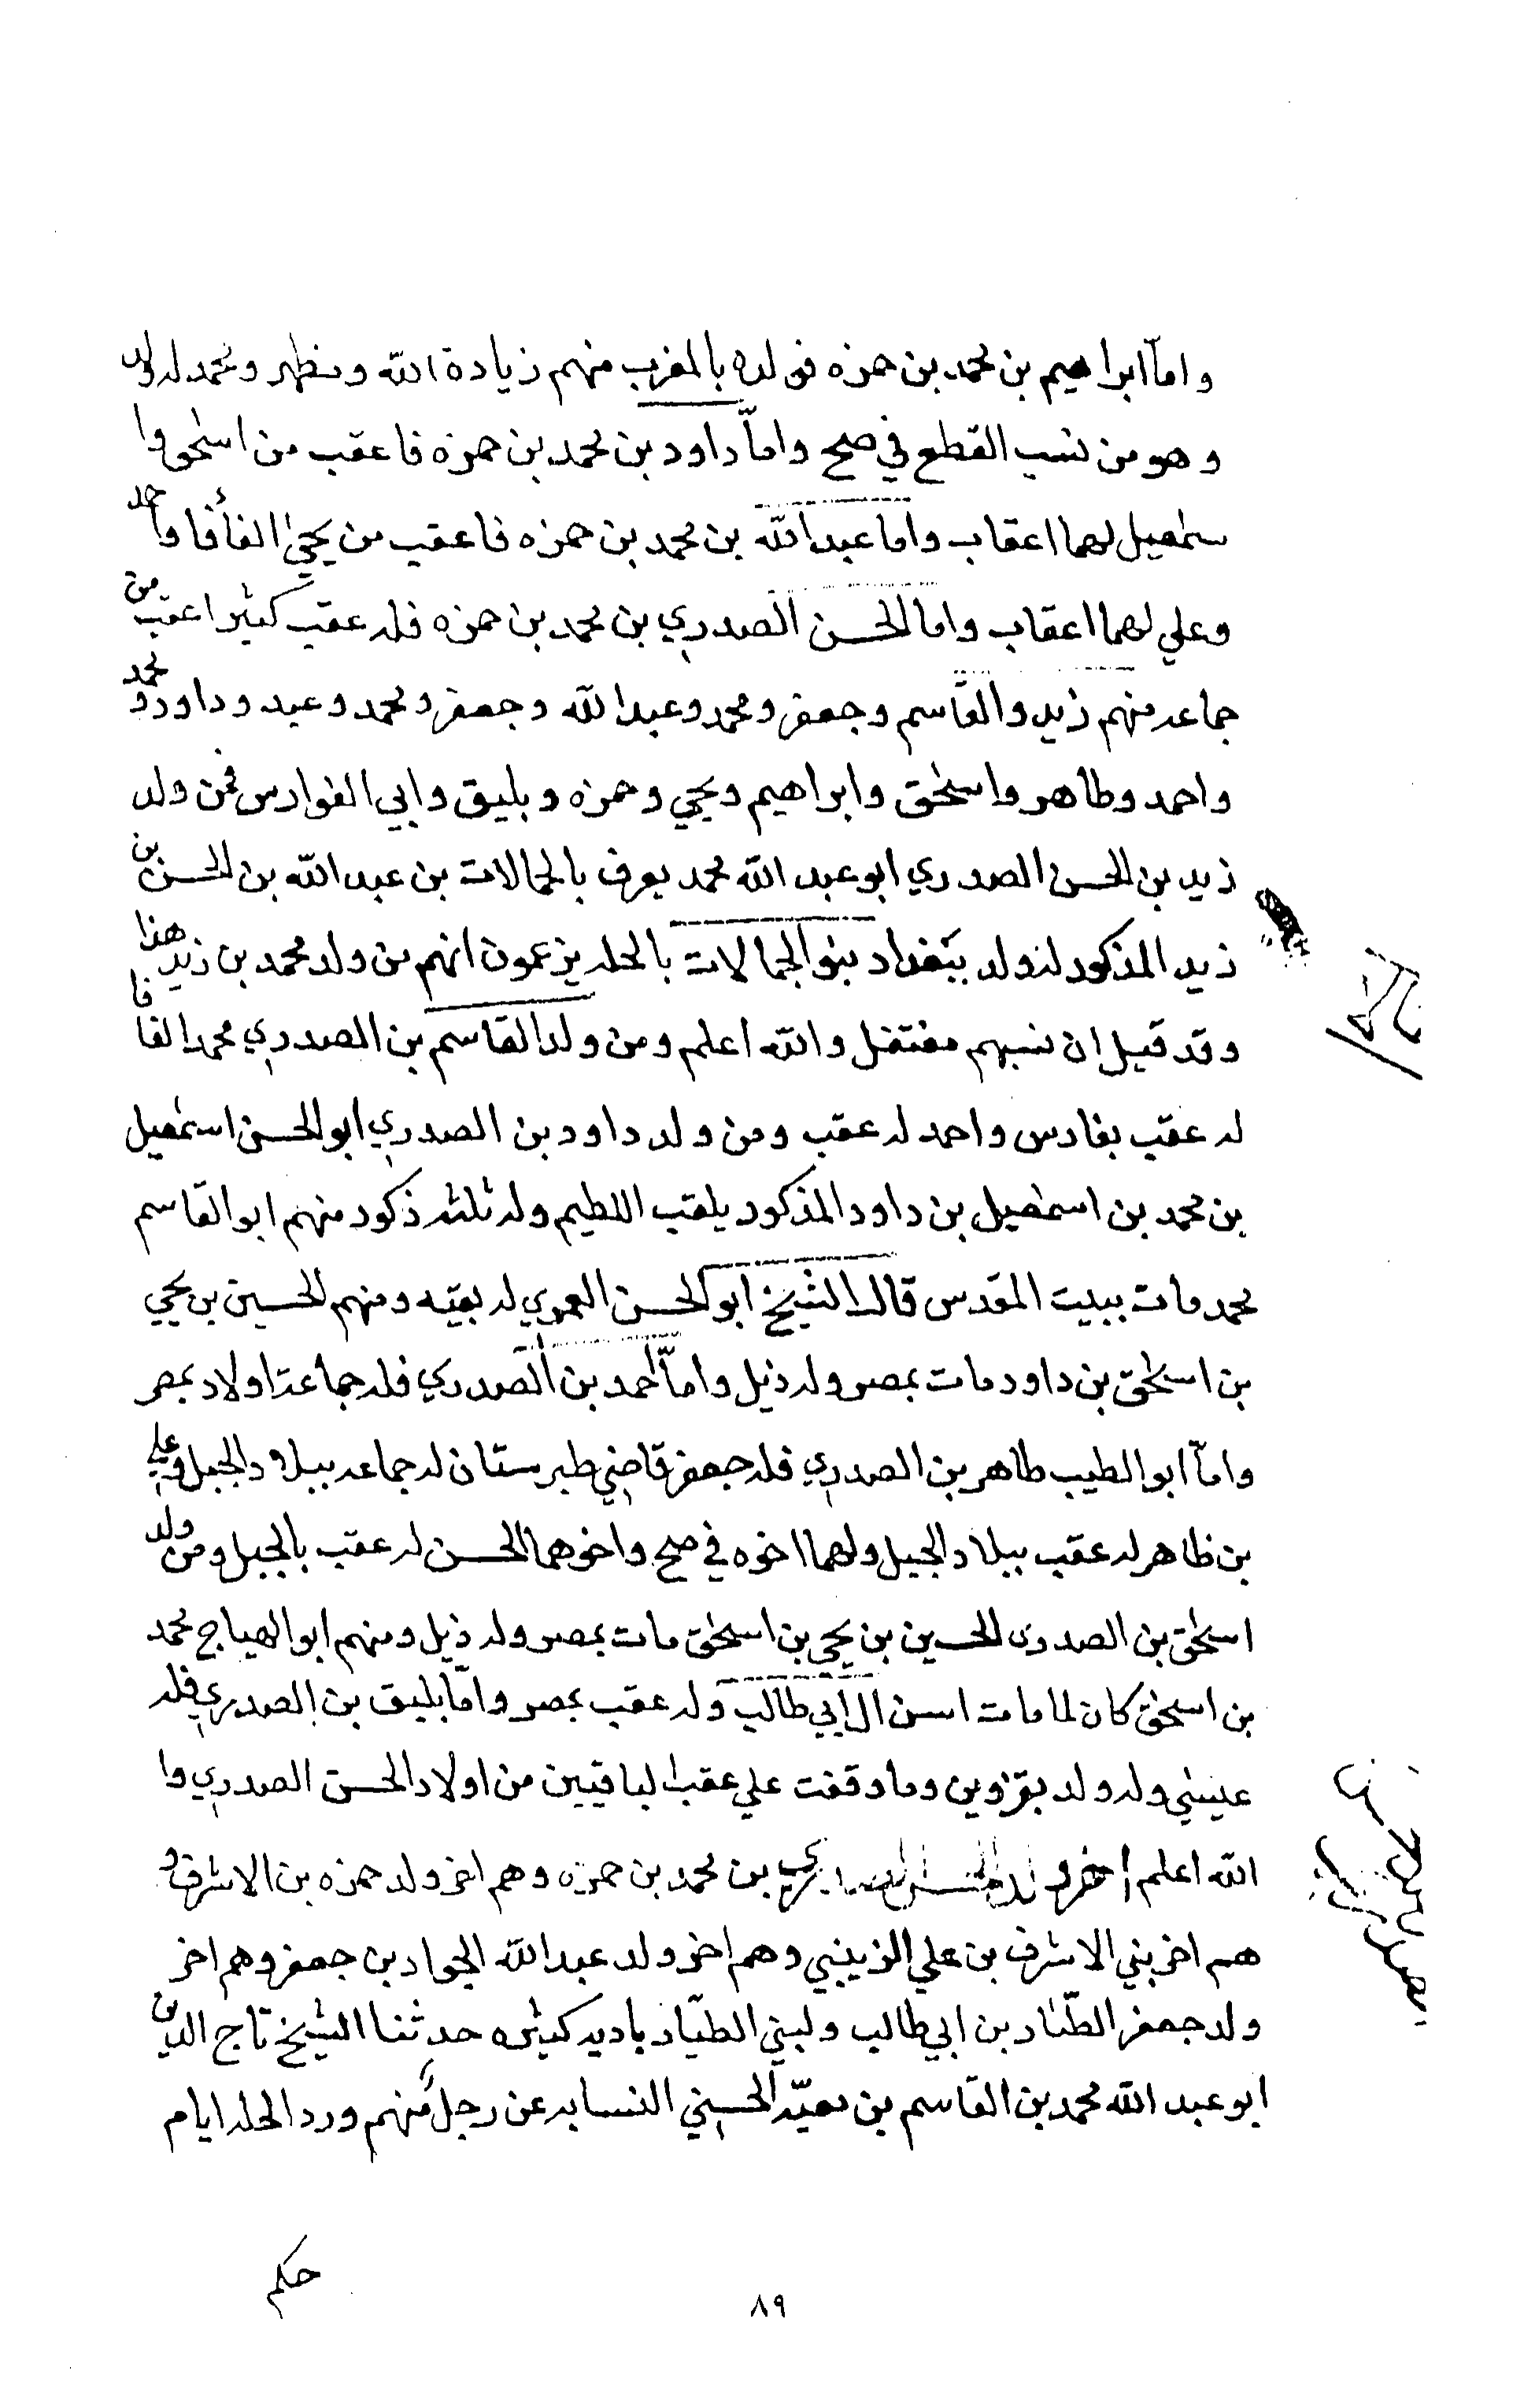 واما ابراهيم بن محمد بن حمزه فولده بالمغرب منهم زيادة الله ومظهر ومحمد له ولد
وهو من نسب القطع في صح واما داود بن محمد بن حمزه فاعقب من اسحق وا
سمعيل لهما اعقاب واما عبد الله بن محمد بن حمزه فاعقب من يحيى الفأفا واحمد
وعلي لهما اعقاب واما الحسن الصدري بن محمد بن حمزه فله عقب كثير اعقب من
جماعه منهم زيد والقاسم وجعفر ومحمد وعبد الله وجعفر ومحمد وعبد وداود ومحمد
واحمد وطاهر واسحق وابراهيم ويحيي وحمزه وبليق وابي الفوارس فمن ولد
زيد بن الحسن الصدري ابو عبد الله محمد يعرف بالجمالات بن عبد الله بن الحسن بن
زيد المذكور له ولد ببغداد بنو الجمالات بالحله يزعمون انهم من ولد محمد بن زيد هذا
وقد قيل ان نسبهم مفتعل والله اعلم ومن ولد القاسم بن الصدري محمد الفافا
له عقب بفارس واحمد له عقب ومن ولد داود بن الصدري ابو الحسن اسمعيل
بن محمد بن اسمعيل بن داود المذكور يلقب اللطيم وله ثلثه ذكور منهم ابو القاسم
محمد مات ببيت المقدس قال الشيخ ابو الحسن العمري له بقيه ومنهم الحسين بن يحيي
بن اسحق بن داود مات بمصر وله ذيل واما احمد بن الصدري فله جماعة اولاد بمصر
واما ابو الطيب طاهر بن الصدري فله جعفر قاضي طبرستان له جماعه ببلاد الجبل وعلي
بن ظاهر له عقب ببلاد الجبل ولهما اخوه في صح واخوهما الحسن له عقب بالجبل ومن ولد
اسحق بن الصدرى الحسين بن يحيى بن اسحق مات بمصر وله ذيل ومنهم ابو الهياج محمد
بن اسحق كان لما مات اسن ال ابي طالب وله عقب بمصر واما بليق بن الصدري فله
عيسي وله ولد بقزوين وما وقفت علي عقب الباقيين من اولاد الحسن الصدري وا
الله اعلم اخر ولد الحسن الصدري بن محمد بن حمزه وهم اخر ولد حمزه بن الاشرف و
هم اخر بني الاشرف بن علي الزينبي وهم اخر ولد عبد الله الجواد بن جعفر وهم اخر
ولد جعفر الطيار بن ابي طالب ولبني الطيار باديه كثيره حدثنا الشيخ تاج الدين
ابو عبد الله محمد بن القاسم بن معيه الحسيني النسابه عن رجل منهم ورد الحله ايام
حكم
٨٩